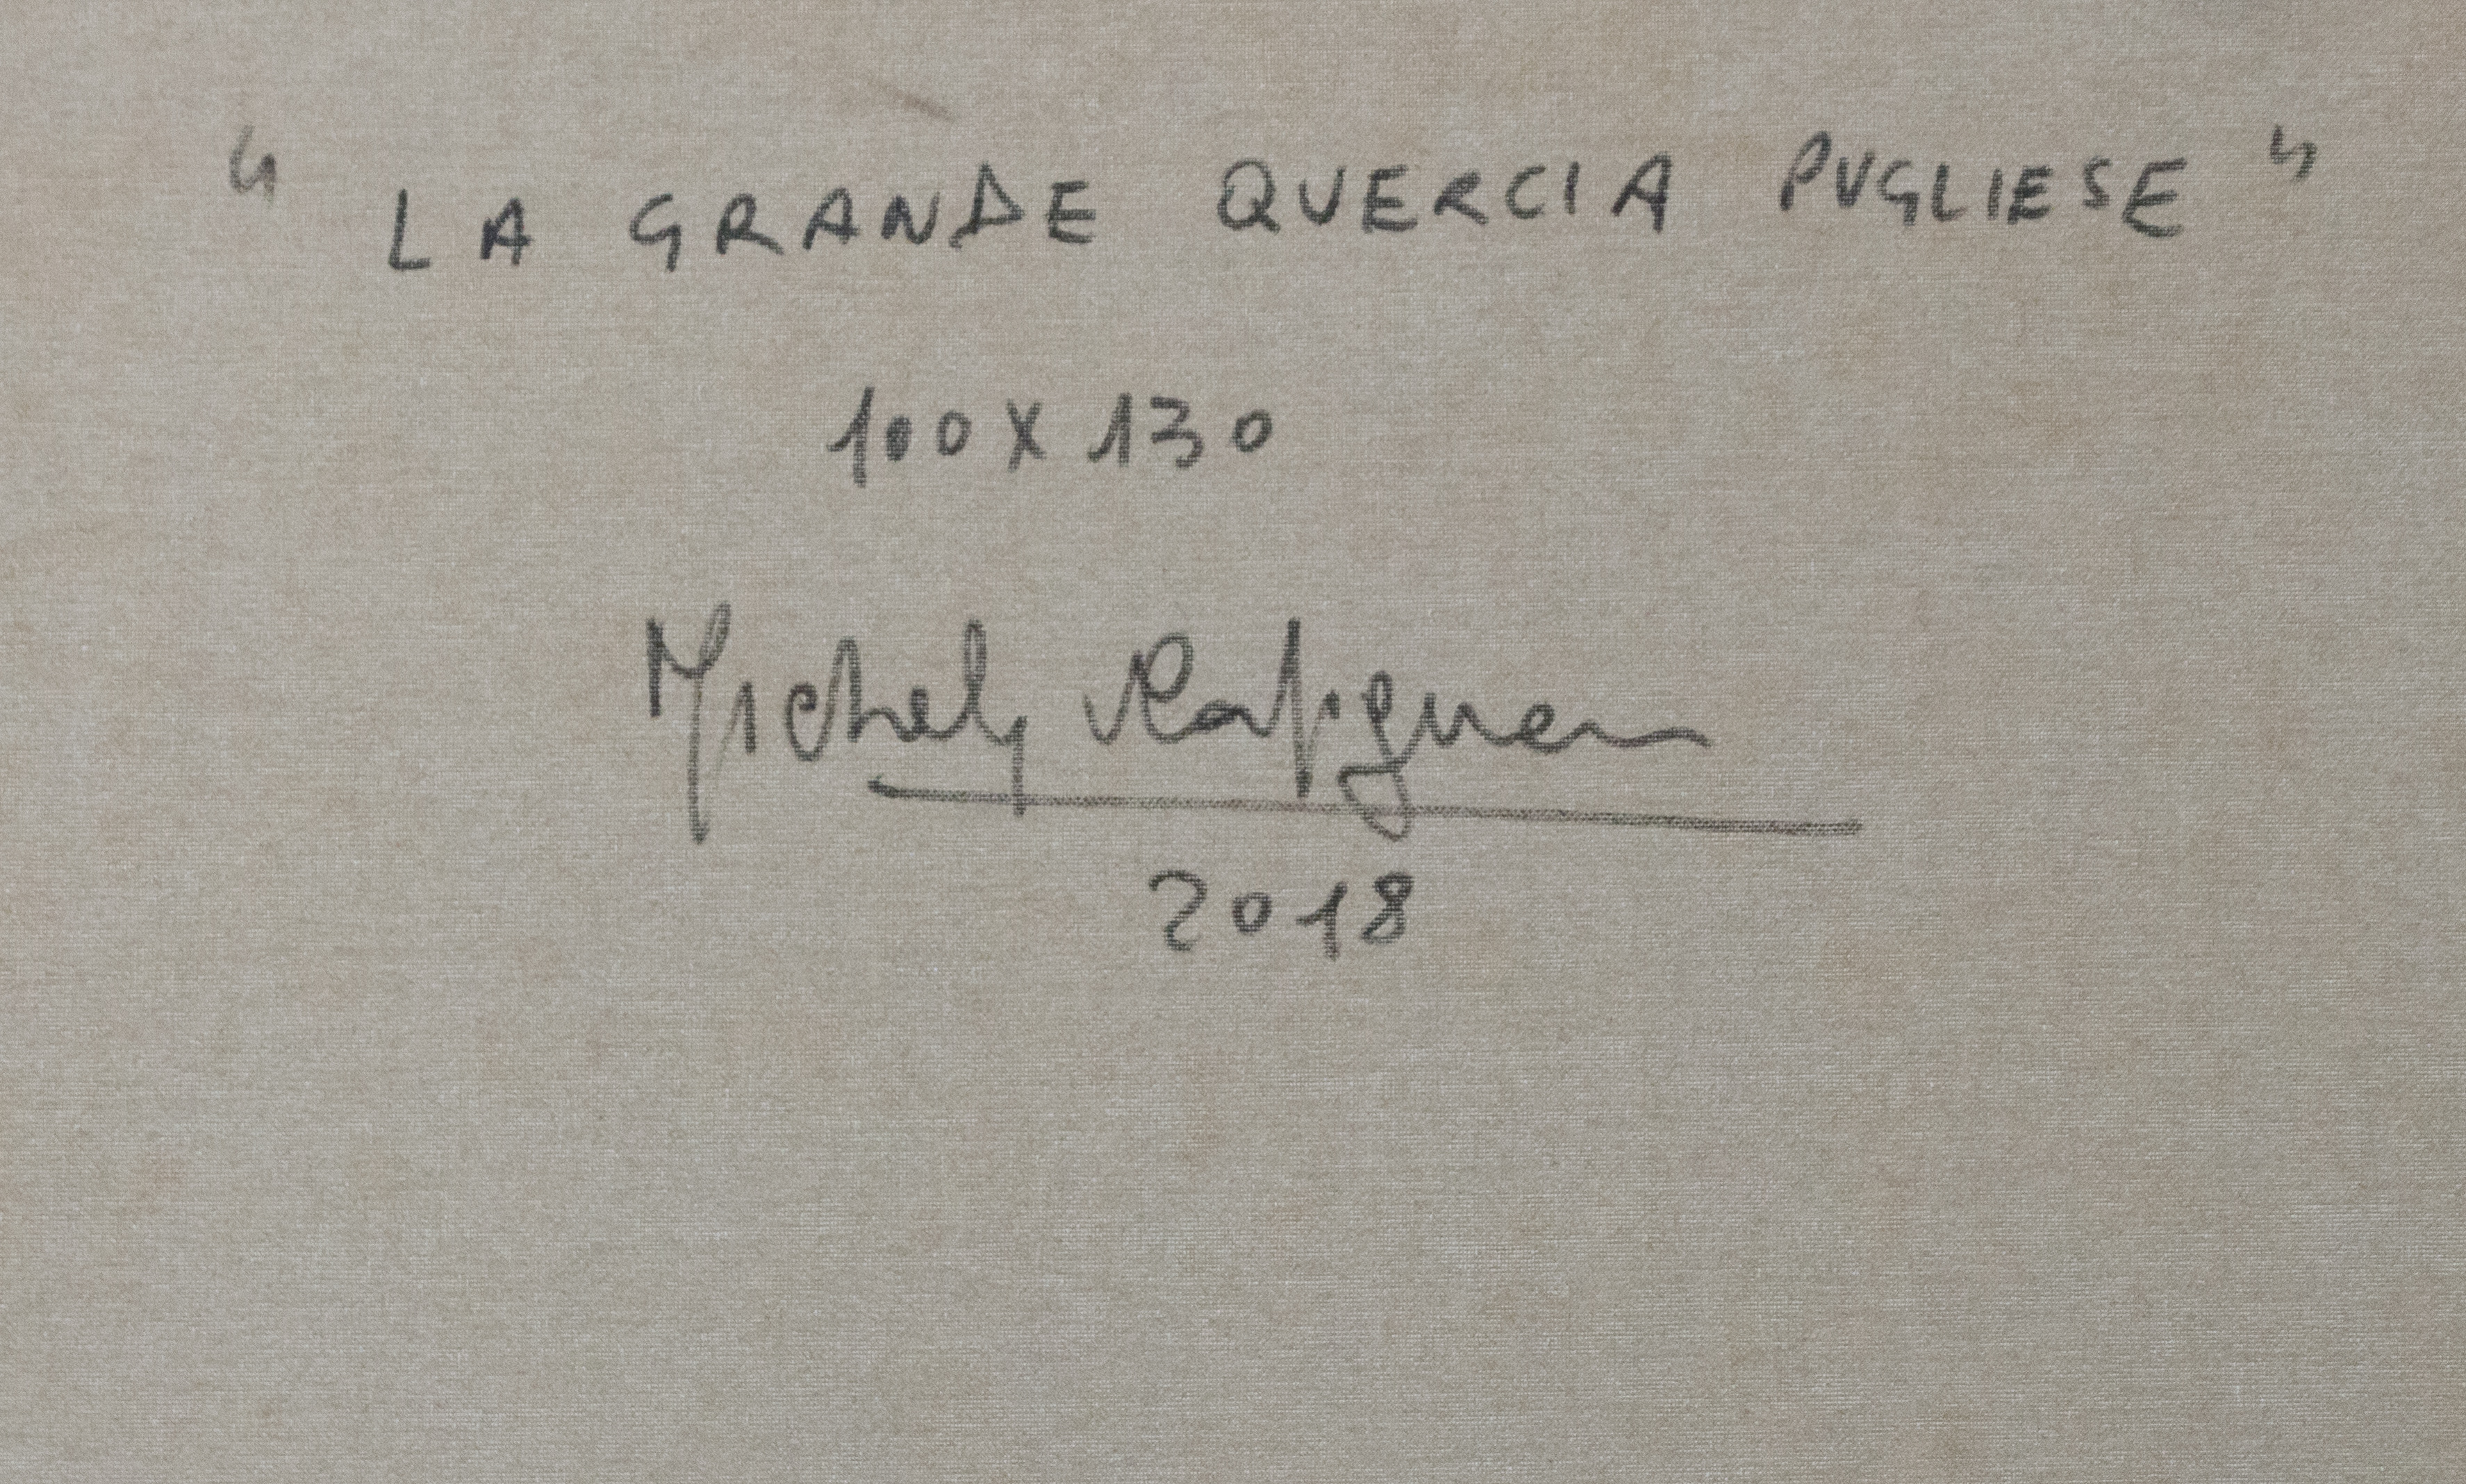 " LA GRANDE QUERCIA PUGLIESE "
100 X 130
2018